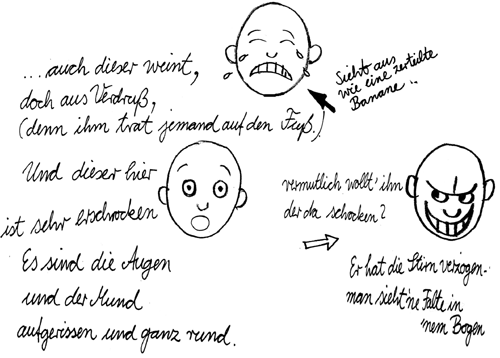 ...auch dieser weint,
doch aus Verdruß,
(denn ihm trat jemand auf den Fuß.)
Sieht aus
wie eine zerteilte
Banane...
Und dieser hier
ist sehr erschrocken
Es sind die Augen
und der Mund
aufgerissen und ganz rund.
vermutlich wollt' ihn
der da schocken?
Er hat die Stirn verzogen-
man sieht 'ne Falte in
'nem Bogen